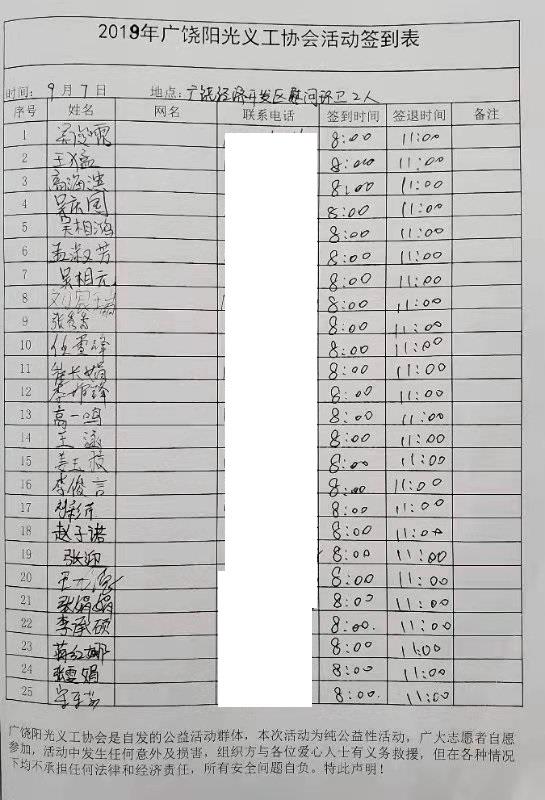 2019年广饶阳光义工协会活动签到表
时间：9月7日 地点：广饶经济开发区慰问环卫工人
序号 姓名 网名 联系电话 签到时间 签退时间 备注
1 8:00 11:00
2 王猛 8:00 11:00
3 高海滨 8:00 11:00
4 吴庆国 8:00 11:00
5 吴相鸿 8:00 11:00
6 孟淑芳 8:00 11:00
7 吴相元 8:00 11:00
8 8:00 11:00
9 张秀香 8:00 11:00
10 任雪峰 8:00 11:00
11 8:00 11:00
12 8:00 11:00
13 高一鸣 8:00 11:00
14 王涵 8:00 11:00
15 姜玉 8:00 11:00
16 李俊言 8:00 11:00
17 8:00 11:00
18 赵子诺 8:00 11:00
19 张迎 8:00 11:00
20 8:00 11:00
21 张娟娟 8:00 11:00
22 李承硕 8:00 11:00
23 蒋红娜 8:00 11:00
24 张雪娟 8:00 11:00
25 8:00 11:00
广饶阳光义工协会是自发的公益活动群体，本次活动为纯公益性活动，广大志愿者自愿
参加，活动中发生任何意外及损害，组织方与各位爱心人士有义务救援，但在各种情况
下均不承担任何法律和经济责任，所有安全问题自负。特此声明！